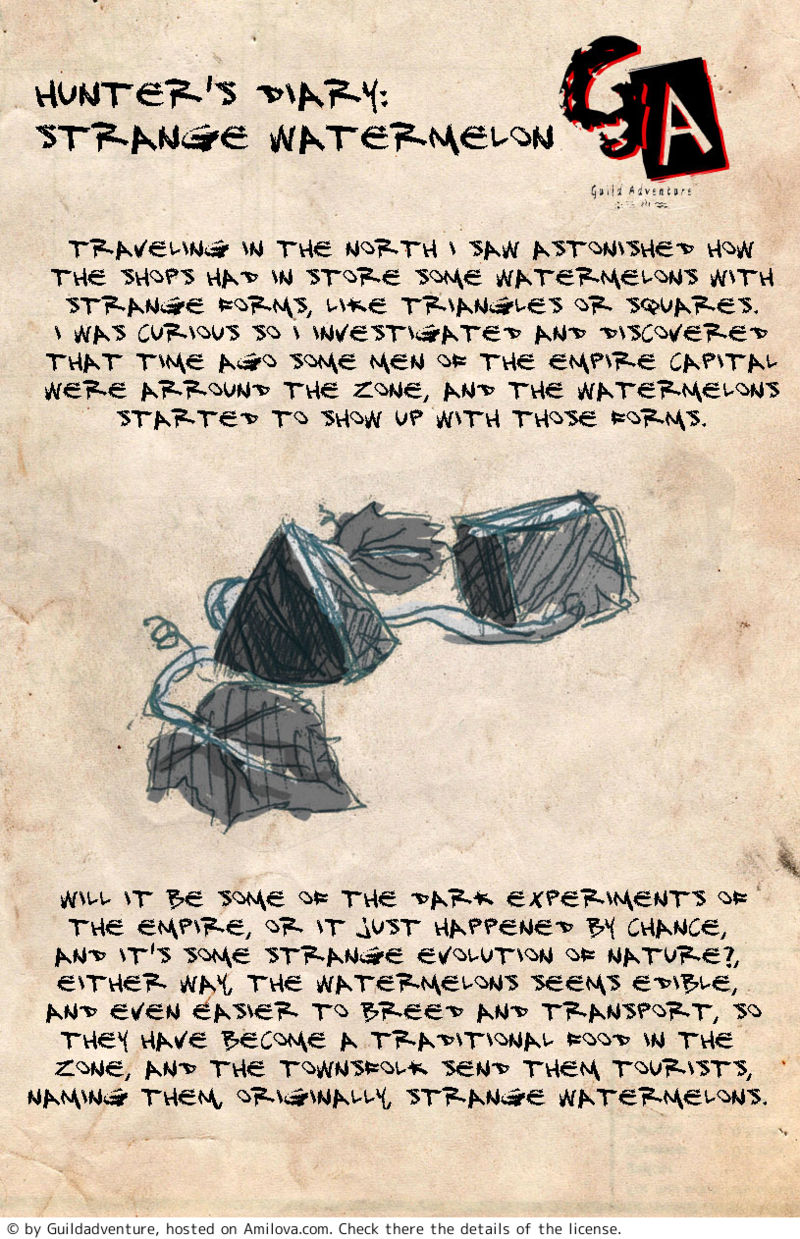 HUNTER'S DIARY:
STRANGE WATERMELON
GA
Guild Adventure
TRAVELING IN THE NORTH I SAW ASTONISHED HOW
THE SHOPS HAD IN STORE SOME WATERMELONS WITH
STRANGE FORMS, LIKE TRIANGLES OR SQUARES.
I WAS CURIOUS SO I INVESTIGATED AND DISCOVERED
THAT TIME AGO SOME MEN OF THE EMPIRE CAPITAL
WERE ARROUND THE ZONE, AND THE WATERMELONS
STARTED TO SHOW UP WITH THOSE FORMS.
WILL IT BE SOME OF THE DARK EXPERIMENTS OF
THE EMPIRE, OR IT JUST HAPPENED BY CHANCE,
AND IT'S SOME STRANGE EVOLUTION OF NATURE?,
EITHER WAY, THE WATERMELONS SEEMS EDIBLE,
AND EVEN EASIER TO BREED AND TRANSPORT, SO
THEY HAVE BECOME A TRADITIONAL FOOD IN THE
ZONE, AND THE TOWNSFOLK SEND THEM TOURISTS,
NAMING THEM, ORIGINALLY, STRANGE WATERMELONS.
© by Guildadventure, hosted on Amilova.com. Check there the details of the license.